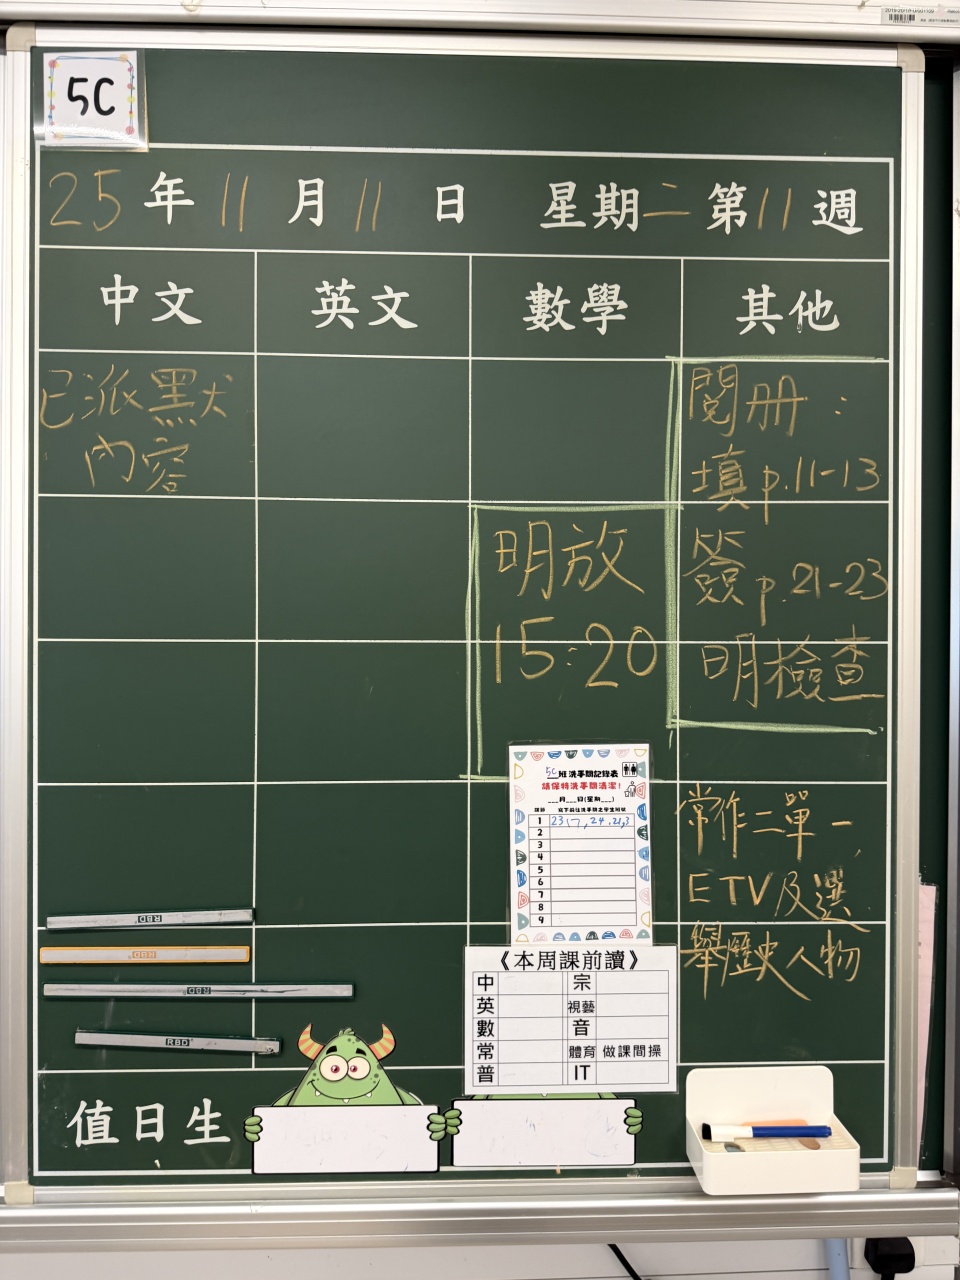 5C
25年11月11日 星期二 第11週
中文 英文 數學 其他
已派默
內容
明放
15:20
閱冊:
填p.11-13
簽p.21-23
明檢查
常作二單一,
ETV及選
舉歷史人物
5C班洗手間記錄表
請保持洗手間清潔!
___月___日(星期___)
課節 寫下前往洗手間之學生班號
1
2
3
4
5
6
7
8
9
RBD
RBD
RBD
RBD
《本周課前讀》
中 宗
英 視藝
數 音
常 體育 做課間操
普 IT
值日生